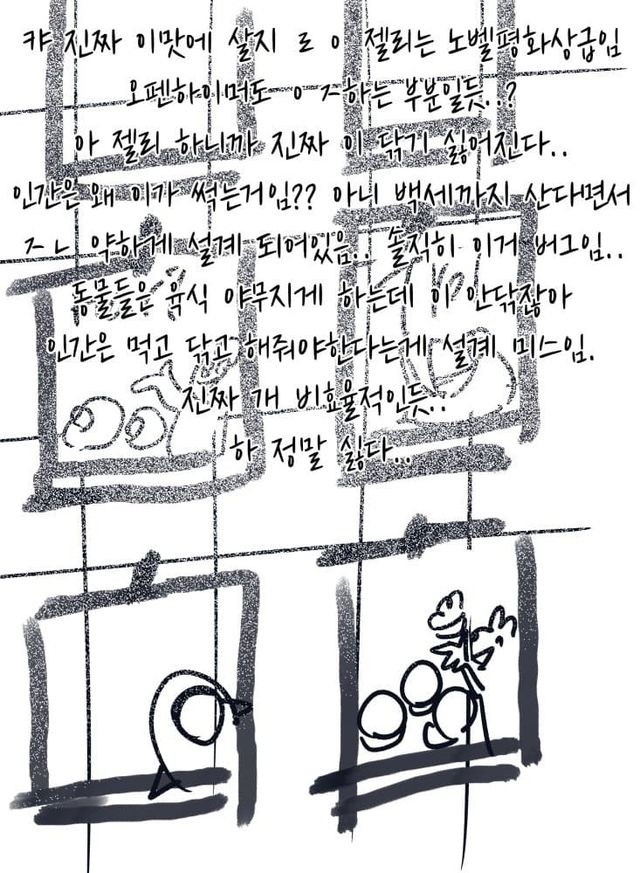 캬 진짜 이맛에 살지 ㄹㅇ 젤리는 노벨평화상급임
오펜하이머도 ㅇㅈ하는 부분일듯..?
아 젤리 하니까 진짜 이 닦기 싫어진다..
인간은 왜 이가 썩는거임?? 아니 백세까지 산다면서
ㅈㄴ 약하게 설계 되어있음.. 솔직히 이거 버그임..
동물들은 육식 야무지게 하는데 이 안닦잖아
인간은 먹고 닦고 해줘야한다는게 설계 미스임.
진짜 개 비효율적인듯..
하 정말 싫다..